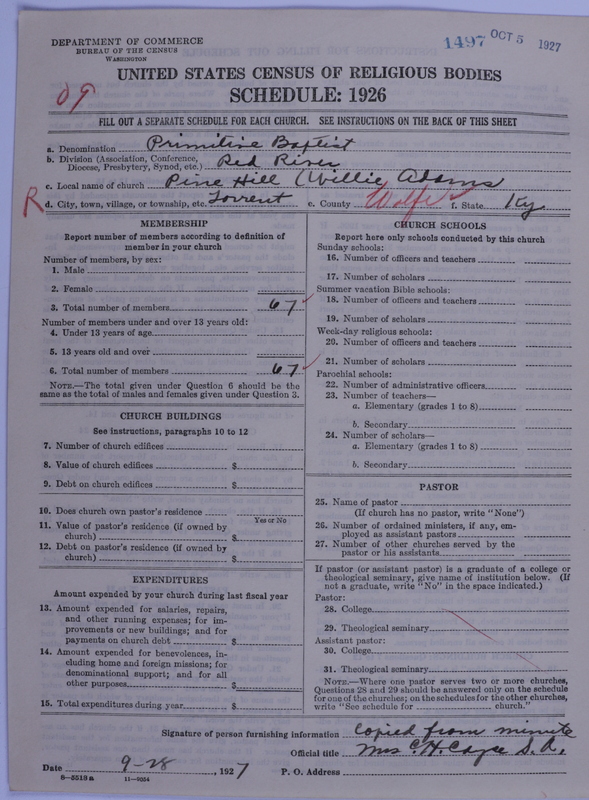 DEPARTMENT OF COMMERCE
BUREAU OF THE CENSUS
WASHINGTON
1497 OCT 5 1927
UNITED STATES CENSUS OF RELIGIOUS BODIES
SCHEDULE: 1926
FILL OUT A SEPARATE SCHEDULE FOR EACH CHURCH. SEE INSTRUCTIONS ON THE BACK OF THIS SHEET
a. Denomination Primitive Baptist
b. Division (Association, Conference, Diocese, Presbytery, Synod, etc.) Red River
c. Local name of church Pine Hill (Willie Adams
R d. City, town, village, or township, etc. Torrent e. County Wolfe f. State Ky.
MEMBERSHIP
Report number of members according to definition of
member in your church
Number of members, by sex:
1. Male
2. Female
3. Total number of members 67
Number of members under and over 13 years old:
4. Under 13 years of age
5. 13 years old and over
6. Total number of members 67
NOTE.—The total given under Question 6 should be the
same as the total of males and females given under Question 3.
CHURCH BUILDINGS
See instructions, paragraphs 10 to 12
7. Number of church edifices
8. Value of church edifices $
9. Debt on church edifices $
10. Does church own pastor's residence
Yes or No
11. Value of pastor's residence (if owned by
church) $
12. Debt on pastor's residence (if owned by
church) $
EXPENDITURES
Amount expended by your church during last fiscal year
13. Amount expended for salaries, repairs,
and other running expenses; for im-
provements or new buildings; and for
payments on church debt $
14. Amount expended for benevolences, in-
cluding home and foreign missions; for
denominational support; and for all
other purposes $
15. Total expenditures during year $
CHURCH SCHOOLS
Report here only schools conducted by this church
Sunday schools:
16. Number of officers and teachers
17. Number of scholars
Summer vacation Bible schools:
18. Number of officers and teachers
19. Number of scholars
Week-day religious schools:
20. Number of officers and teachers
21. Number of scholars
Parochial schools:
22. Number of administrative officers
23. Number of teachers—
a. Elementary (grades 1 to 8)
b. Secondary
24. Number of scholars—
a. Elementary (grades 1 to 8)
b. Secondary
PASTOR
25. Name of pastor
(If church has no pastor, write "None")
26. Number of ordained ministers, if any, em-
ployed as assistant pastors
27. Number of other churches served by the
pastor or his assistants
If pastor (or assistant pastor) is a graduate of a college or
theological seminary, give name of institution below. (If
not a graduate, write "No" in the space indicated.)
Pastor:
28. College
29. Theological seminary
Assistant pastor:
30. College
31. Theological seminary
NOTE.—Where one pastor serves two or more churches,
Questions 28 and 29 should be answered only on the schedule
for one of the churches; on the schedules for the other churches,
write "See schedule for church."
Signature of person furnishing information Copied from minute
Official title Mrs C. H. Cayce S. A.
Date 9-28, 1927 P. O. Address
8—5519 a 11—9354